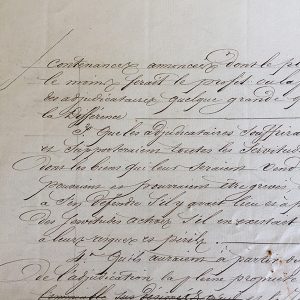 contenances annoncées dont le pl
le moins ferait le profit ou la
des adjudicataires quelque grande q
la différence.
3° Que les adjudicataires souffrira
et supporteraient toutes les servitud
dont les biens qui leur seraient vend
pouvaient et pourraient être grevés,
à s'en défendre s'il y avait lieu et à p
des servitudes actives s'il en existait
à leurs risques et périls.
4° Qu'ils auraient à partir du
de l'adjudication la pleine propriét
immeubles sus désignés